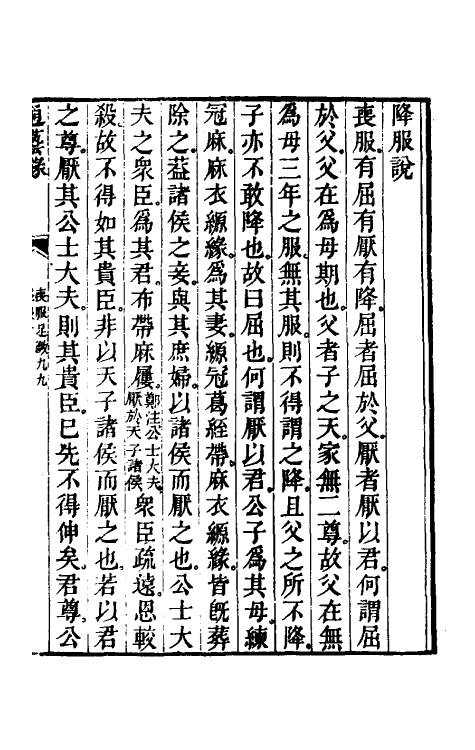 降服說
喪服有屈有厭有降屈者屈於父厭者厭以君何謂屈
於父父在爲母期也父者子之天家無二尊故父在無
爲母三年之服無其服則不得謂之降且父之所不降
子亦不敢降也故曰屈也何謂厭以君公子爲其母練
冠麻麻衣縓緣爲其妻縓冠葛絰帶麻衣縓緣皆旣葬
除之葢諸侯之妾與其庶婦以諸侯而厭之也公士大
夫之衆臣爲其君布帶麻屨鄭注公士大夫厭於天子諸侯衆臣疏遠恩較
殺故不得如其貴臣非以天子諸侯而厭之也若以君
之尊厭其公士大夫則其貴臣已先不得伸矣君尊公
通藝錄
喪服足徵九九